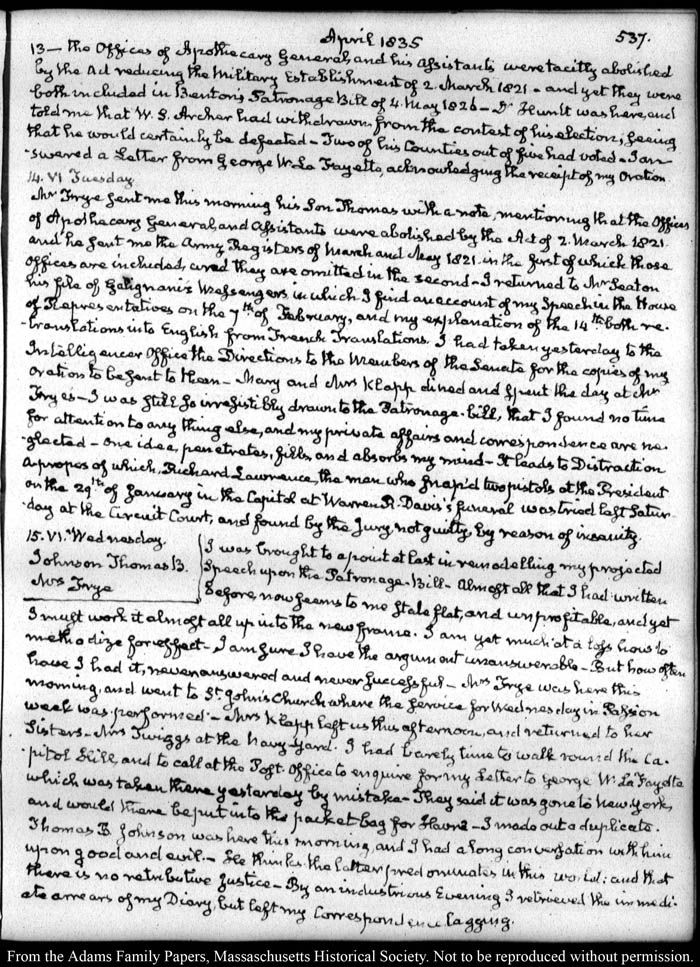 April 1835
537.
13 — the Offices of Apothecary General, and his Assistants were tacitly abolished
by the Act reducing the Military Establishment of 2. March 1821 - and yet they were
both included in Benton's Patronage Bill of 4. May 1826 - Dr. Hunt was here, and
told me that W. S. Archer had withdrawn from the contest of his election; seeing
that he would certainly be defeated - Two of his Counties out of five had voted - I an-
-swered a Letter from George W. La Fayette, acknowledging the receipt of my Oration
14. VI. Tuesday.
Mr Frye sent me this morning his Son Thomas with a note, mentioning that the Offices
of Apothecary General, and Assistants were abolished by the Act of 2. March 1821.
and he sent me the Army Registers of March and May 1821. in the first of which those
Offices are included, and they are omitted in the second - I returned to Mr Seaton
his file of Galignani's Messengers, in which I find an account of my Speech in the House
of Representatives on the 7th of February, and my explanation of the 14th both re-
-translations into English from French Translations. I had taken yesterday to the
Intelligencer Office the Directions to the Members of the Senate for the copies of my
Oration to be sent to them - Mary and Mrs Klapp dined and spent the day at Mr
Frye's - I was still so irresistibly drawn to the Patronage-bill, that I found no time
for attention to any thing else, and my private affairs and correspondence are ne-
-glected - One idea, penetrates, fills, and absorbs my mind - It leads to Distraction
apropos of which, Richard Lawrence, the man who snap'd two pistols at the President
on the 29th of January in the Capitol at Warren R. Davis's funeral was tried last Satur-
-day at the Circuit Court, and found by the Jury not guilty, by reason of insanity.
15. VI. Wednesday.
Johnson Thomas B.
Mrs Frye
I was brought to a point at last in remodelling my projected
Speech upon the Patronage-Bill - Almost all that I had written
before, now seems to me stale flat, and unprofitable, and yet
I must work it almost all up into the new frame. I am yet much at a loss how to
methodize for effect - I am sure I have the argument unanswerable - But how often
have I had it, never answered and never successful - Mrs Frye was here this
morning, and went to St. John's Church where the service for Wednesday in Passion
week was performed - Mrs Klapp left us this afternoon, and returned to her
Sisters - Mrs Twiggs at the Navy Yard. I had barely time to walk round the Ca-
-pitol Hill, and to call at the Post-Office to enquire for my Letter to George W. La Fayette
which was taken there yesterday by mistake - They said it was gone to New York,
and would there be put into the packet bag for Havre - I made out a duplicate.
Thomas B. Johnson was here this morning, and I had a long conversation with him
upon good and evil. - He thinks the latter predominates in this world: and that
there is no retributive justice - By an industrious Evening I retrieved the immedi-
ate arrears of my Diary, but left my Correspondence lagging.
From the Adams Family Papers, Massachusetts Historical Society. Not to be reproduced without permission.